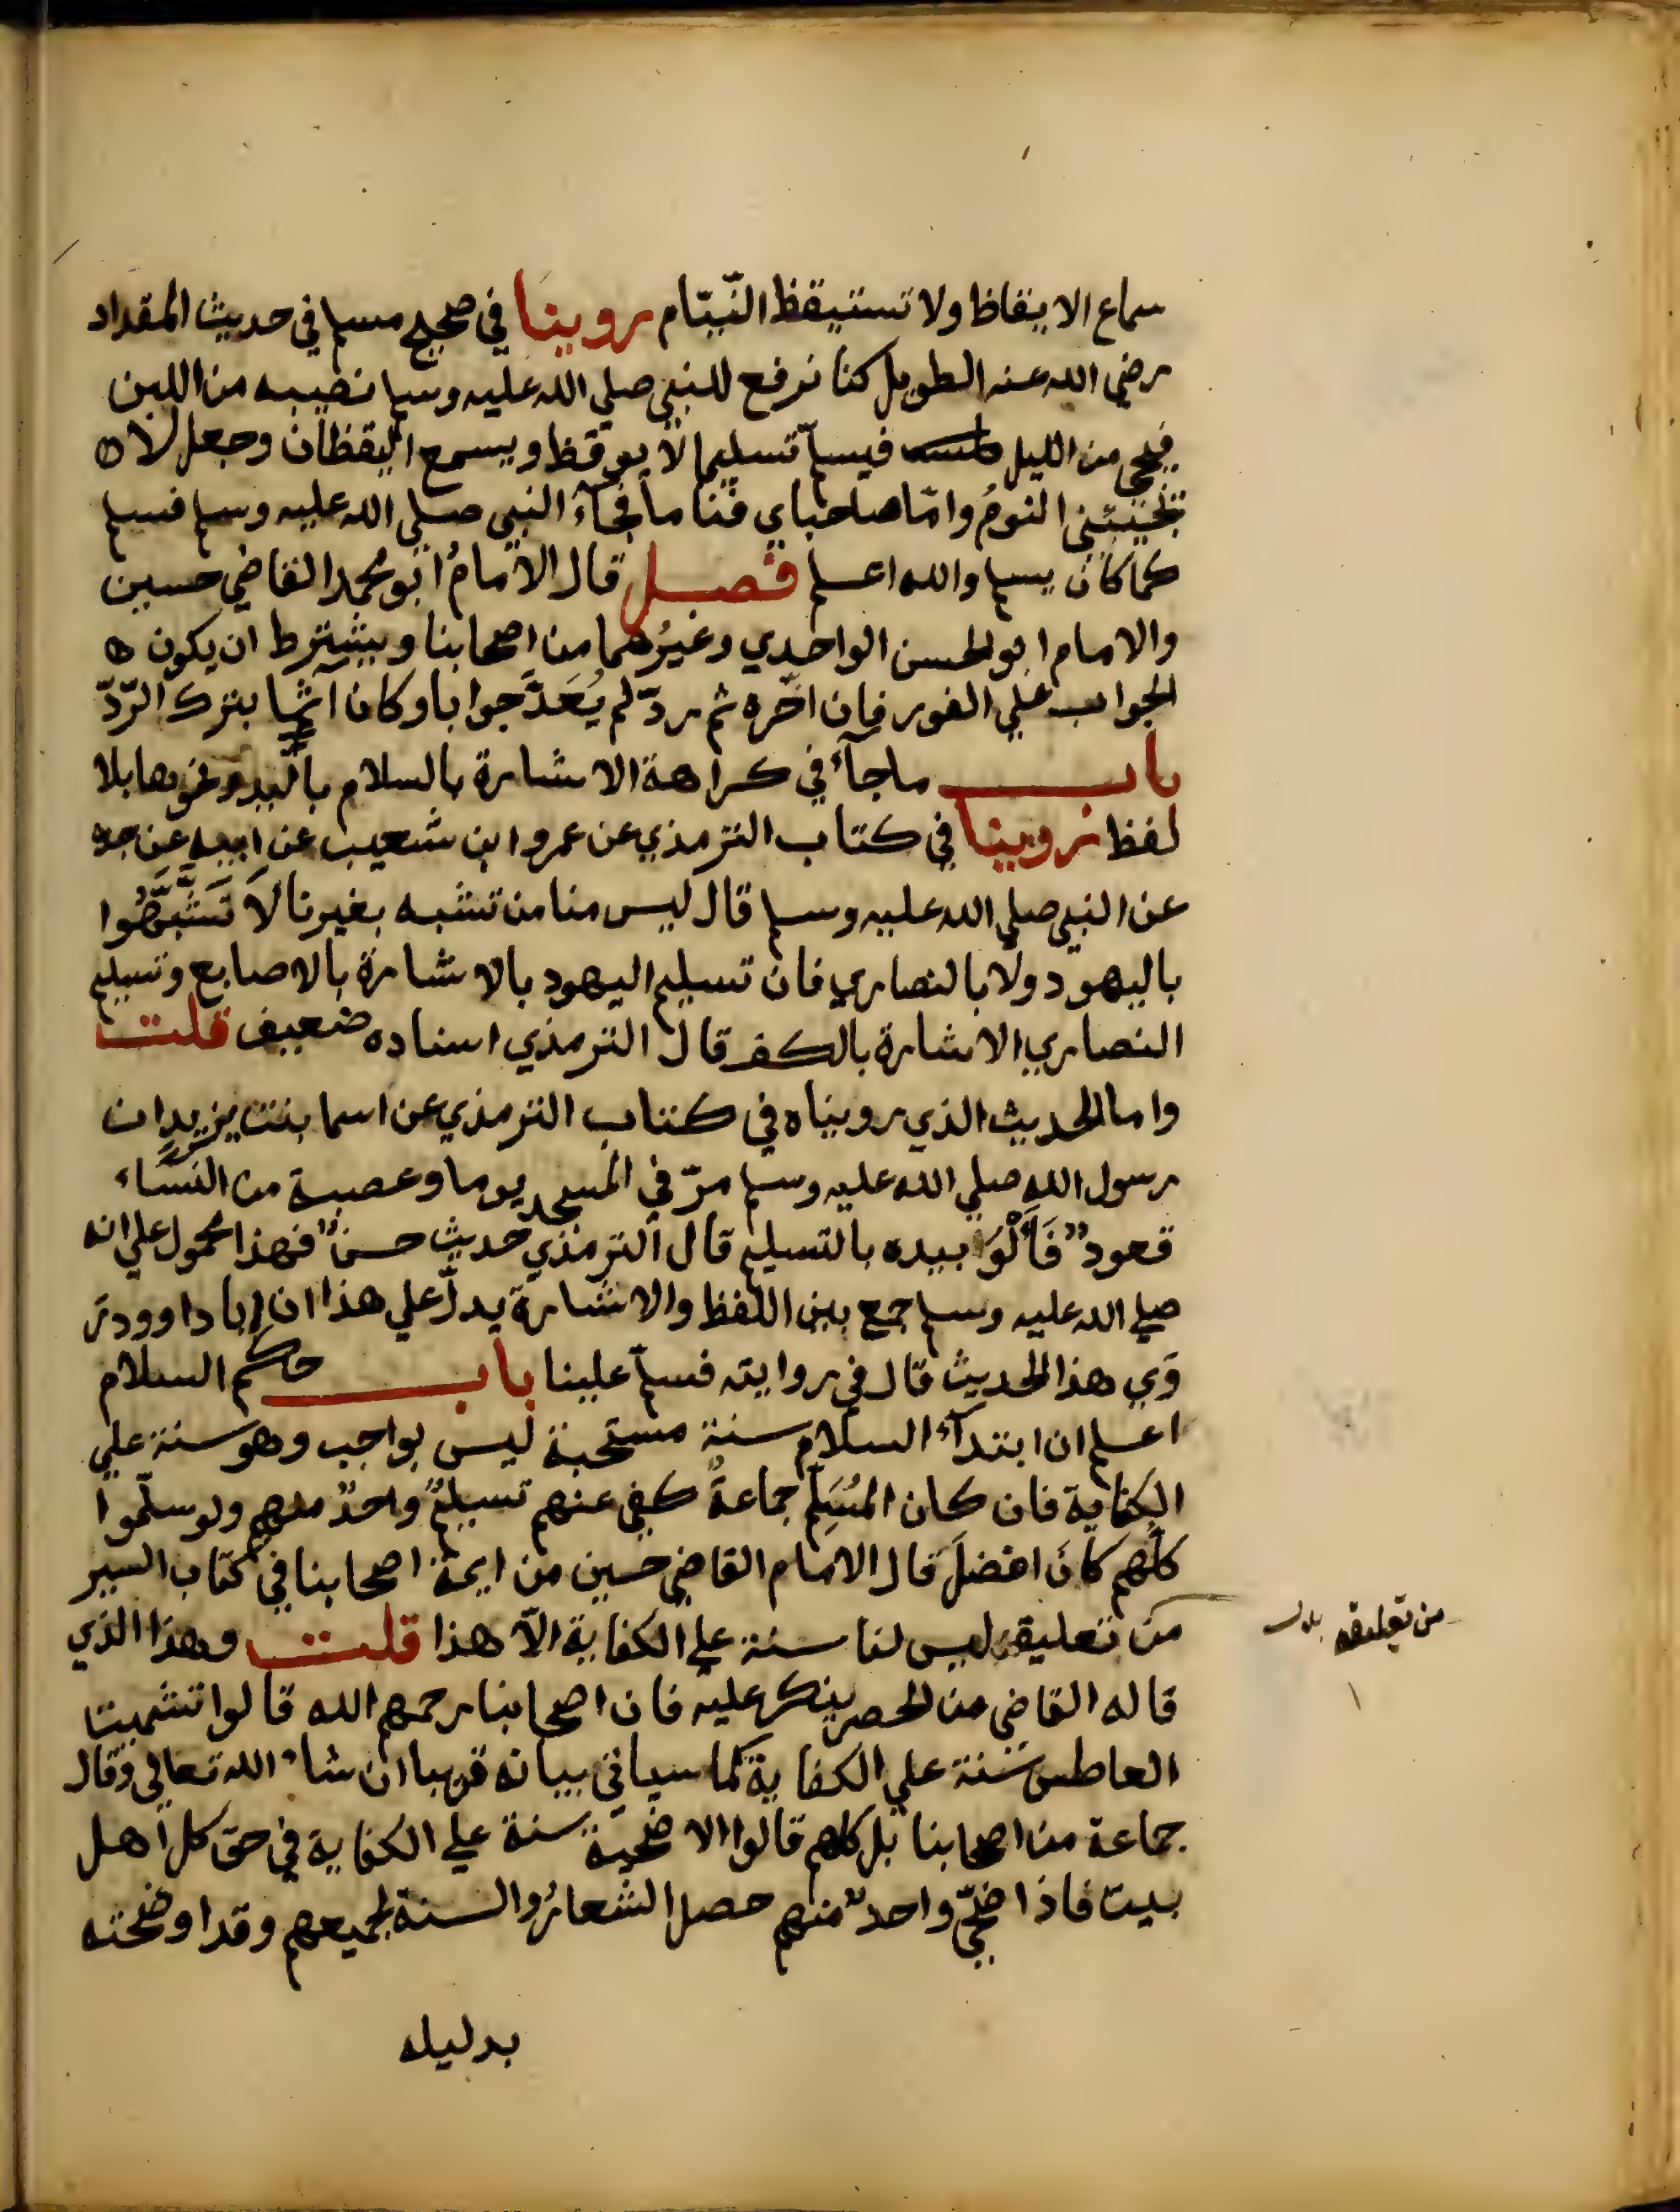 سماع الايقاظ ولا تستيقظ النيّام روينا في صحيح مسلم في حديث المقداد
رضي الله عنه الطويل كنا نرفع للنبي صلي الله عليه وسلم نصيبه من اللبن
فيجي من الليل فيسلّم تسليما لا يوقظ ويسمع اليقظان وجعل لا
يجيئني النومُ وامّا صاحباي فناما فجآءَ النبي صلي الله عليه وسلم فسلم
كما كان يسلم والله اعلم فصل قال الامامُ ابو محمد القاضي حسين
والامام ابو الحسن الواحدي وغيرُهما من اصحابنا ويشترط ان يكون
الجواب علي الفور فان اخّره ثم ردّ لم يُعَدَّ جوابا وكان آثما بترك الردّ
باب ماجآءَ في كراهة الاشارة بالسلام باليد ونحوها بلا
لفظ روينا في كتاب الترمذي عن عمرو ابن شعيب عن ابيه عن جده
عن النبي صلي الله عليه وسلم قال ليس منا من تشبه بغيرنا لاَ تَشَبَّهُوا
باليهود ولا بالنصاري فان تسليم اليهود بالاشارة بالاصابع وتسليم
النصاري الاشارة بالكف قال الترمذي اسناده ضعيف قلت
واما الحديث الذي رويناه في كتاب الترمذي عن اسما بنت يزيد ان
رسول الله صلي الله عليه وسلم مرّ في المسجد يوما وعصبة من النسآء
قعودٌ فَأَلْوَا بيده بالتسليم قال الترمذي حديث حسنٌ فهذا محمول علي انه
صلي الله عليه وسلم جمع بين اللفظ والاشارة يدلّ علي هذا ان ابا داوود رَ
وَي هذا الحديث قال في روايته فسلّم علينا باب حكم السلام
اعلم ان ابتدآءَ السلام سنة مستحبة ليس بواجب وهو سنة علي
الكفاية فان كان المُسَلِّم جماعةً كفي عنهم تسليمٌ واحدٌ منهم ولو سلّموا
كلهم كانَ افضلَ قال الامام القاضي حسين من ايمة اصحابنا في كتاب السير
من تعليقه ليس لنا سنة علي الكفاية الاّ هذا قلت وهذا الذي
قاله القاضي من الحصر ينكر عليه فان اصحابنا رحمهم الله قالوا تشميت
العاطس سنة علي الكفاية كما سياتي بيانه قريبا ان شاء الله تعالي وقال
جماعة من اصحابنا بل كلهم قالوا الاضحية سنة علي الكفاية في حق كل اهل
بيت فاذا ضحّي واحدٌ منهم حصل الشعائرُ والسنة لجميعهم وقد اوضحته
بدليله
من تعليقه